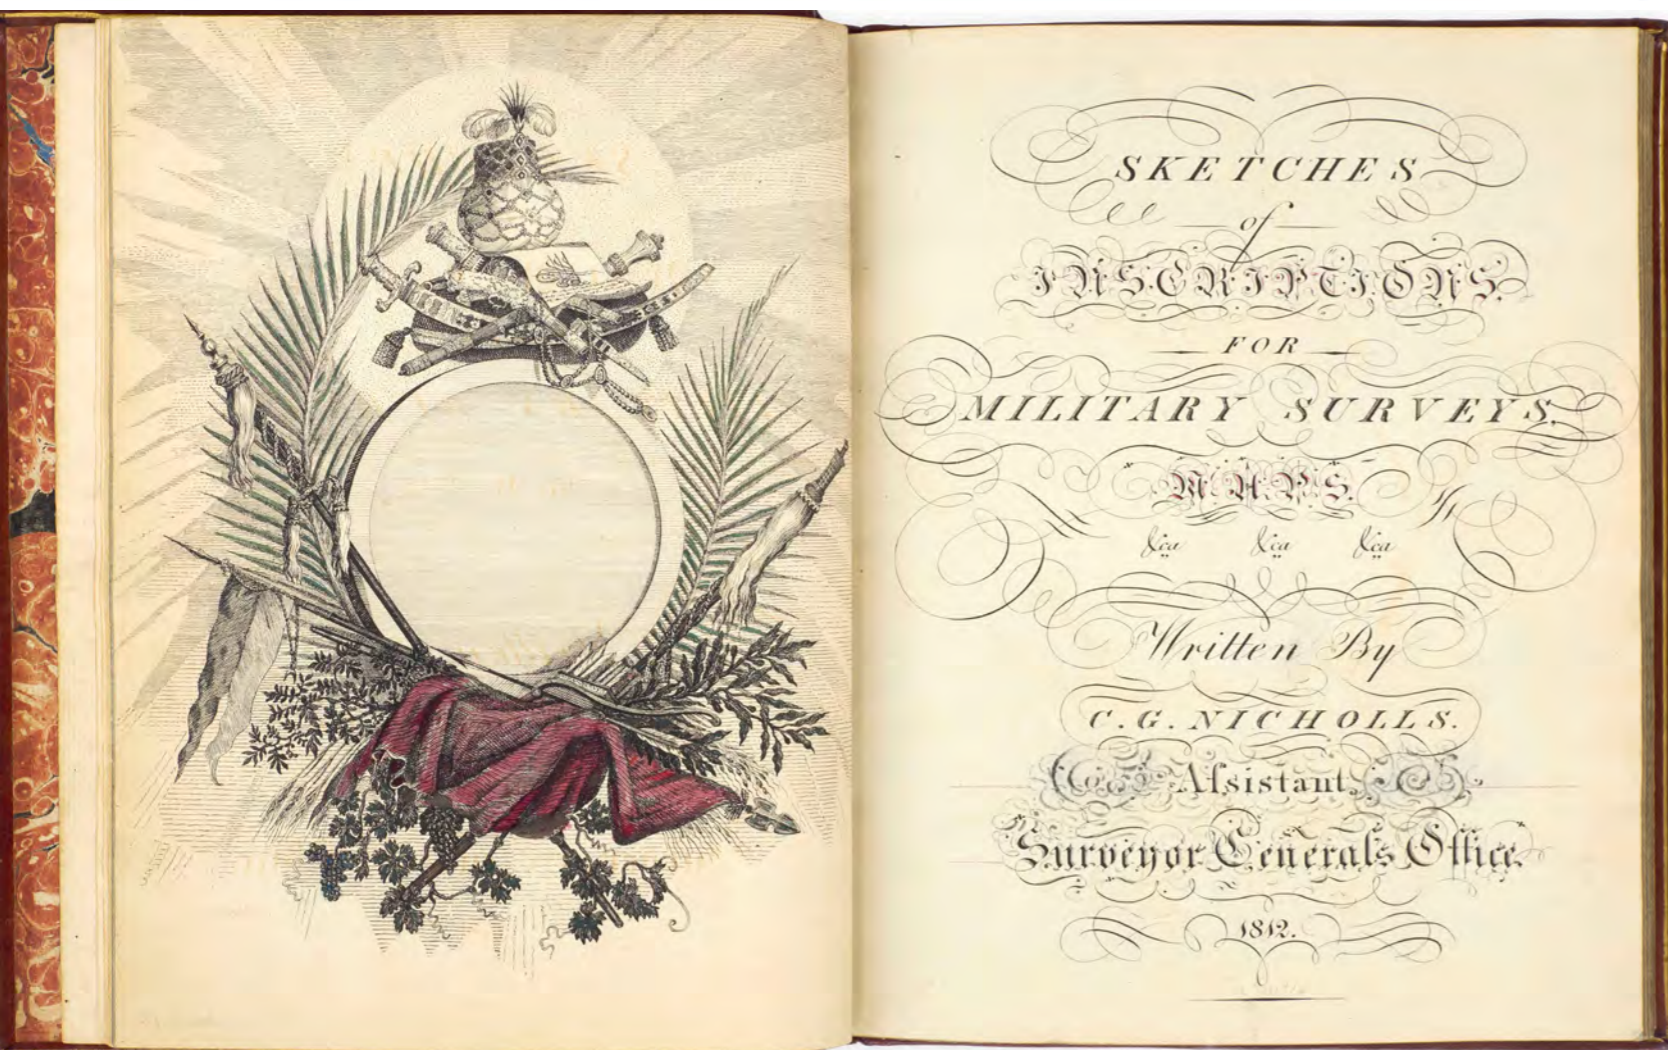 SKETCHES
of
INSCRIPTIONS.
FOR
MILITARY SURVEYS,
MAPS.
&ca &ca &ca
Written By
C. G. NICHOLLS.
Aſsistant,
Surveyor Generals Office,
1812.